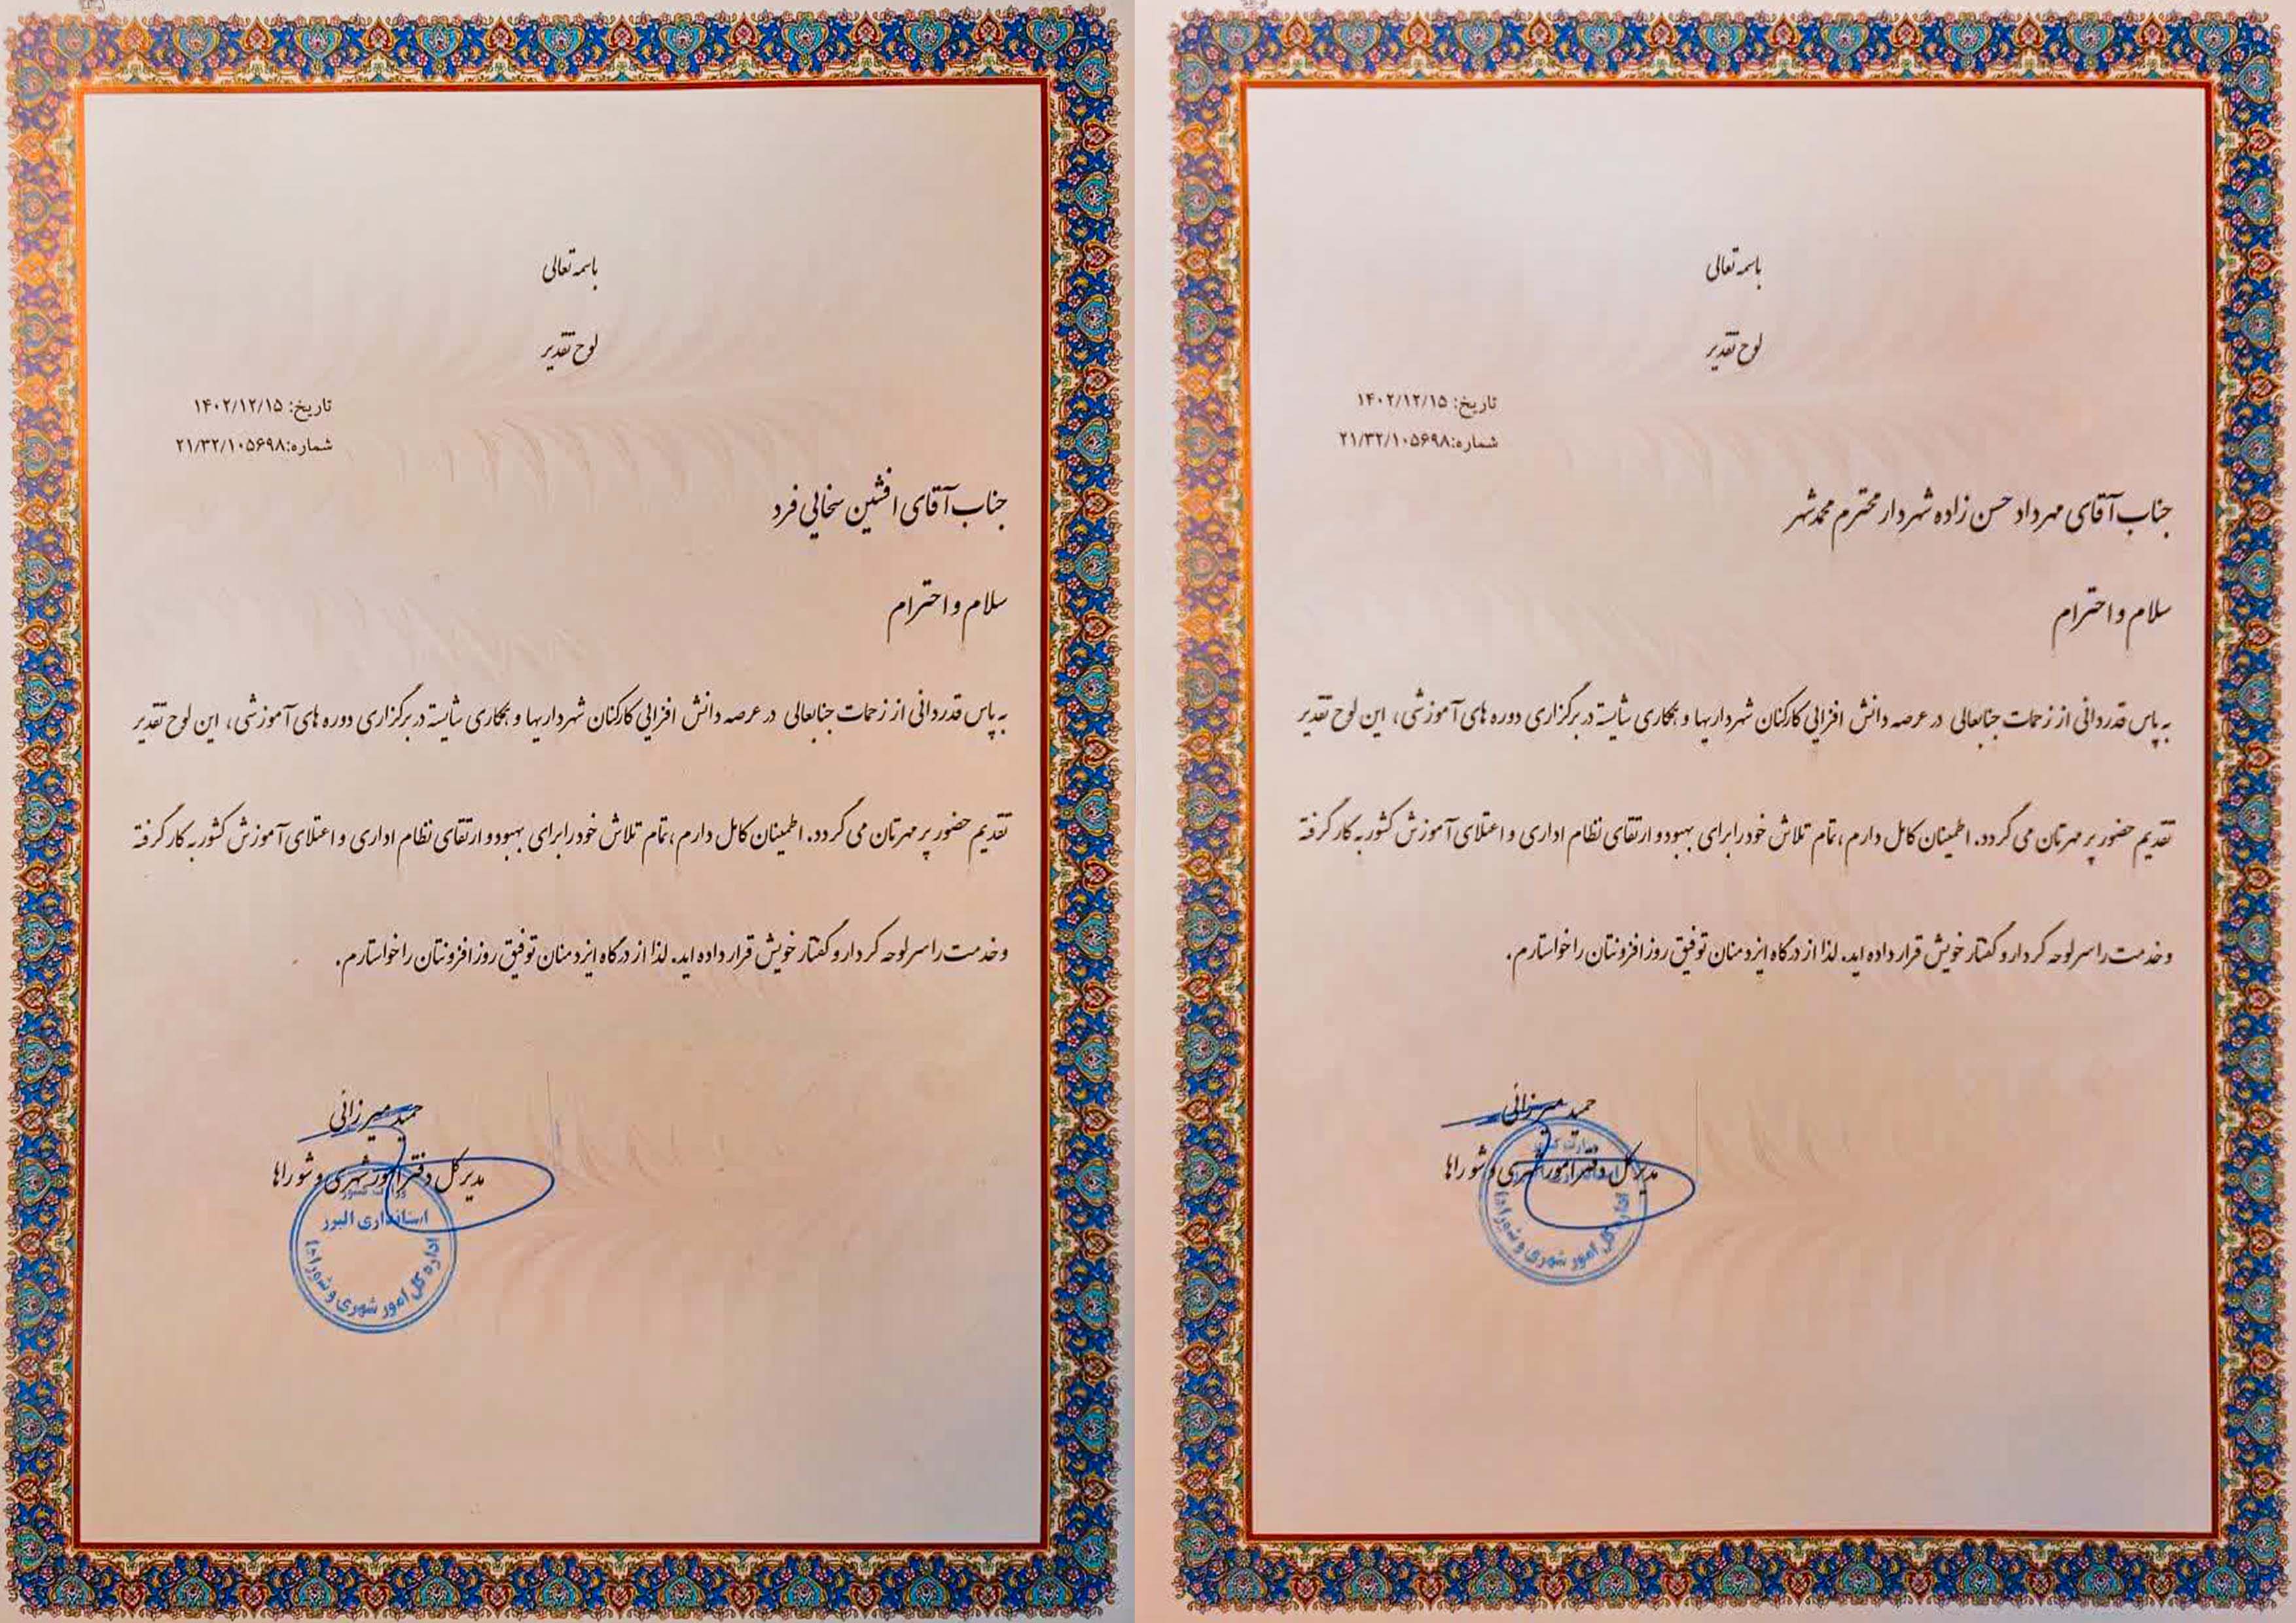 باسمه تعالی
لوح تقدیر
تاریخ: ۱۴۰۲/۱۲/۱۵
شماره:۲۱/۳۲/۱۰۵۶۹۸
جناب آقای مهرداد حسن زاده شهردار محترم محمدشهر
سلام و احترام
به پاس قدردانی از زحمات جنابعالی در عرصه دانش افزایی کارکنان شهرداریها و همکاری شایسته در برگزاری دوره های آموزشی، این لوح تقدیر
تقدیم حضور پر مهرتان می گردد. اطمینان کامل دارم، تمام تلاش خود را برای بهبود و ارتقای نظام اداری و اعتلای آموزش کشور به کار گرفته
و خدمت را سرلوحه کردار و گفتار خویش قرار داده اید. لذا از درگاه ایزد منان توفیق روز افزونتان را خواستارم.
حمید میرزائی
مدیر کل دفتر امور شهری و شوراها
وزارت کشور
اداره کل امور شهری و شوراها
باسمه تعالی
لوح تقدیر
تاریخ: ۱۴۰۲/۱۲/۱۵
شماره:۲۱/۳۲/۱۰۵۶۹۸
جناب آقای افشین سخایی فرد
سلام و احترام
به پاس قدردانی از زحمات جنابعالی در عرصه دانش افزایی کارکنان شهرداریها و همکاری شایسته در برگزاری دوره های آموزشی، این لوح تقدیر
تقدیم حضور پر مهرتان می گردد. اطمینان کامل دارم، تمام تلاش خود را برای بهبود و ارتقای نظام اداری و اعتلای آموزش کشور به کار گرفته
و خدمت را سرلوحه کردار و گفتار خویش قرار داده اید. لذا از درگاه ایزد منان توفیق روز افزونتان را خواستارم.
حمید میرزائی
مدیر کل دفتر امور شهری و شوراها
وزارت کشور
استانداری البرز
اداره کل امور شهری و شوراها